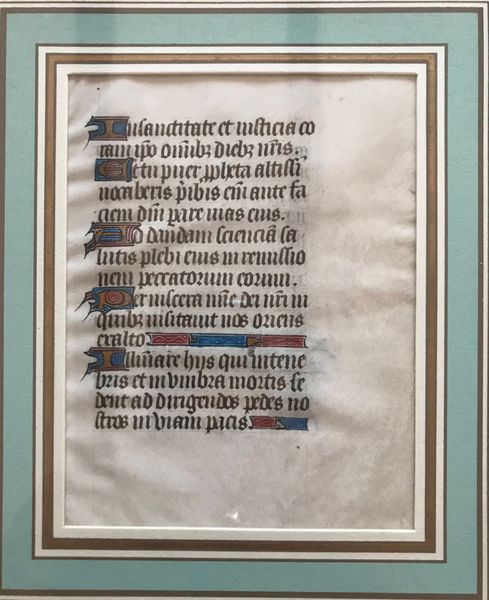 In sanctitate et iusticia co
ram ip̄o om̄ibꝫ diebꝫ nr̄is.
Et tu puer ꝓpheta altissi
uocaberis p̄ibis eī ante fa
ciem dn̄i parare uias eius.
Ad dandam scienciā sa
lutis plebi eius in remissio
nem peccatorum eorum.
Per uiscera mīe dei nr̄i in
quibꝫ uisitauit nos oriens
ex alto
Illūiare hijs qui in tene
bris et in vmbra mortis se
dent ad dirigendos pedes no
stros in viam pacis.